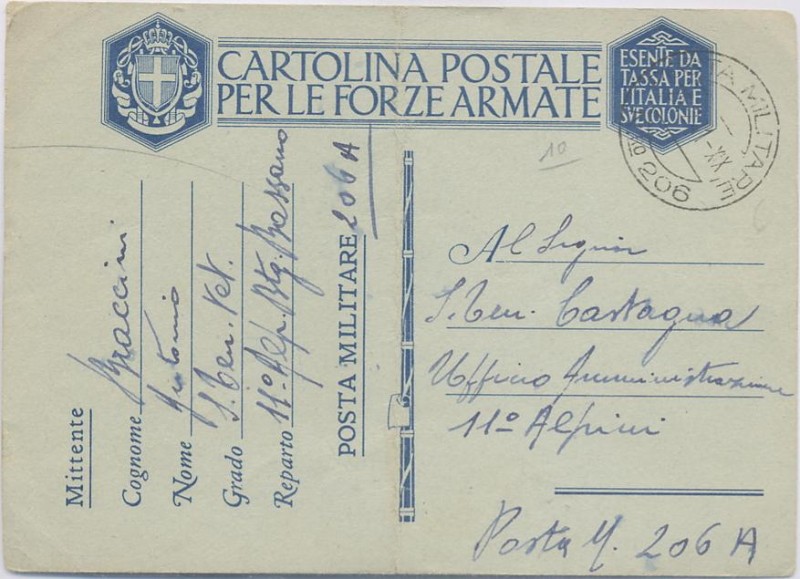 CARTOLINA POSTALE
PER LE FORZE ARMATE
ESENTE DA
TASSA PER
L'ITALIA E
SVE COLONIE
POSTA MILITARE
206
XIX
10
Mittente
Cognome Braccini
Nome Antonio
Grado S. Ten. Vet.
Reparto 11° Alp. Btg. Bassano
POSTA MILITARE 206 A
Al Signor
S. Ten. Castagna
Ufficio Amministrazione
11° Alpini
Posta M. 206 A